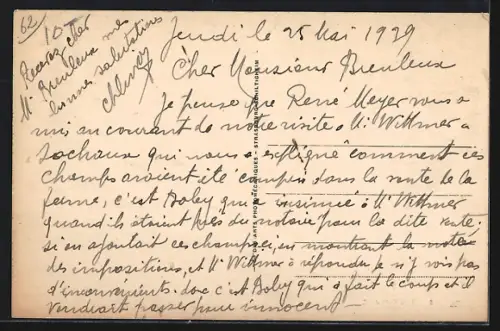 62
10
Recevez cher
Mr Breuleux mes
bonnes salutations
Jeudi le 25 Mai 1929
Cher Monsieur Breuleux
Je pense que René Meyer vous a
mis au courant de notre visite a Mr Wittmer a
Sochaux qui nous a expliqué comment ces
champs avaient été compris dans la vente de la
ferme, c'est Boley qui a insinué a Mr Wittmer
quand ils étaient près du notaire pour la dite vente
si en ajoutant ces champs, en montrant la
des impositions, et Mr Wittmer a répondu je n'y vois pas
d'inconvenients. donc c'est Boley qui a fait le coup et il
voudrait passer pour innocent